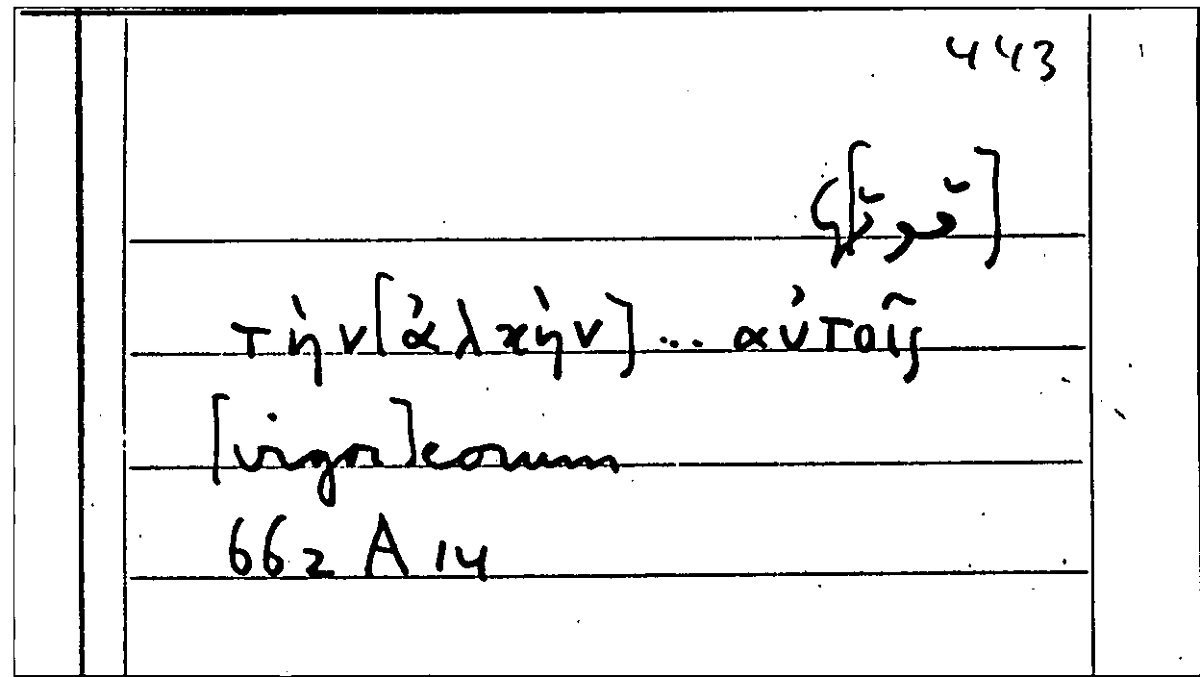 443
τὴν[ἀλκὴν]... αὐτοῖς
[virgor]eorum
662 A 14